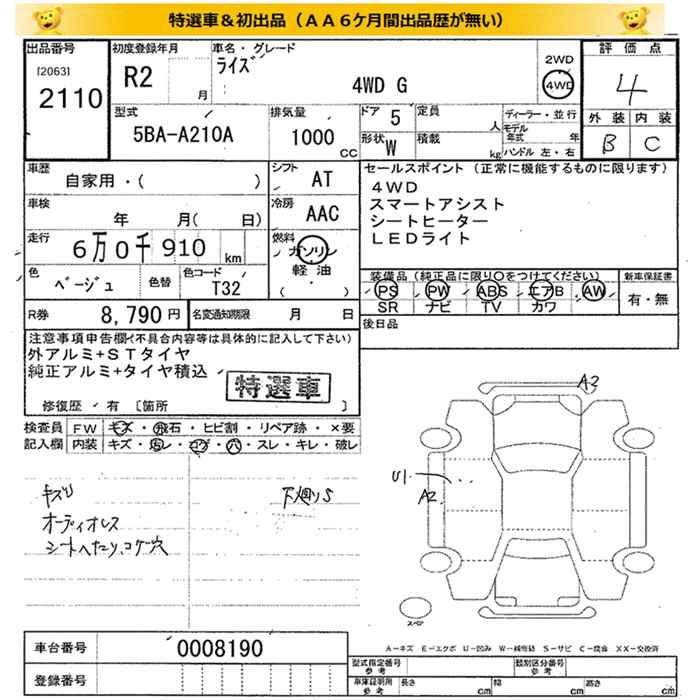 特選車&初出品(AA6ケ月間出品歴が無い)
出品番号
[2063]
2110
初度登録年月
R2
月
車名・グレード
ライズ
4WD G
2WD
4WD
評価点
4
外装 内装
B C
型式
5BA-A210A
排気量
1000
CC
ドア
5
定員
人
形状
W
積載
kg
ディーラー・並行
モデル年式 年
ハンドル 左・右
車歴
自家用・( )
シフト
AT
車検
年 月( 日)
冷房
AAC
走行
6万0千910km
燃料
ガソリン
軽油
( ・ )
色
ベージュ
色替
色コード
T32
R券
8,790円
名変通知期限
月 日
セールスポイント(正常に機能するものに限ります)
4WD
スマートアシスト
シートヒーター
LEDライト
装備品(純正品に限り○をつけてください)
PS PW ABS エアB AW
SR ナビ TV カワ
新車保証書
有・無
後日品
注意事項申告欄(不具合内容等は具体的に記入して下さい)
外アルミ+STタイヤ
純正アルミ+タイヤ積込
特選車
修復歴・有〔箇所 〕
検査員 FW キズ・飛石・ヒビ割・リペア跡・×要
記入欄 内装 キズ・汚レ・コゲ・穴・スレ・キレ・破レ
キズリ
オーディオレス
シートヘたり、コゲ穴
下廻りS
A2
U1
A2
スペア
A-キズ E-エクボ U-凹み W-補修跡 S-サビ C-腐食 XX-交換済
車台番号
0008190
登録番号
型式指定番号
参考
類別区分番号
参考
車庫証明用
参考
長さ cm
幅 cm
高さ cm